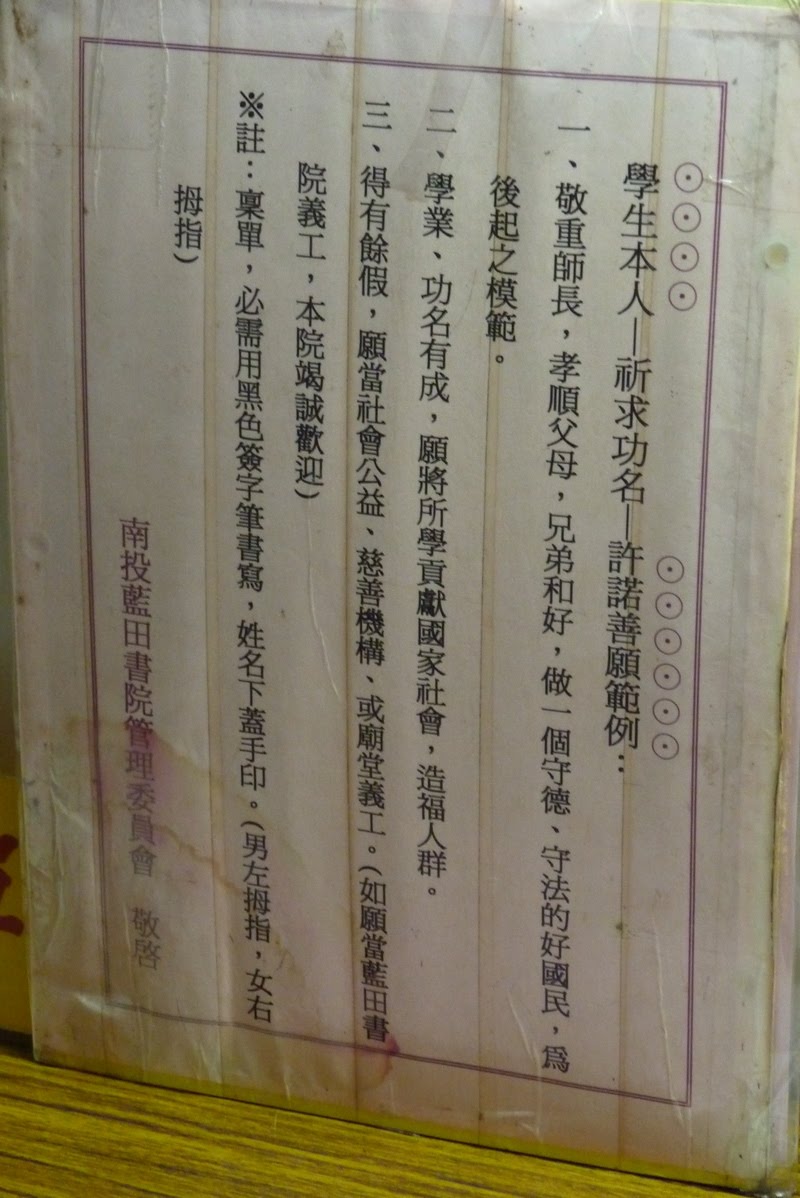 學生本人—祈求功名—許諾善願範例：
一、敬重師長，孝順父母，兄弟和好，做一個守德、守法的好國民，爲
後起之模範。
二、學業、功名有成，願將所學貢獻國家社會，造福人群。
三、得有餘假，願當社會公益、慈善機構、或廟堂義工。(如願當藍田書
院義工，本院竭誠歡迎)
※註：稟單，必需用黑色簽字筆書寫，姓名下蓋手印。(男左拇指，女右
拇指)
南投藍田書院管理委員會 敬啓